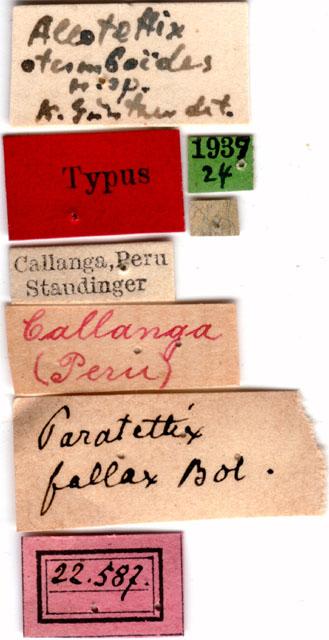 Alotettix
otumboides
n. sp.
K. Günther det.
Typus
1939
24
Callanga, Peru
Staudinger
Callanga
(Peru)
Paratettix
fallax Bol.
22.587.